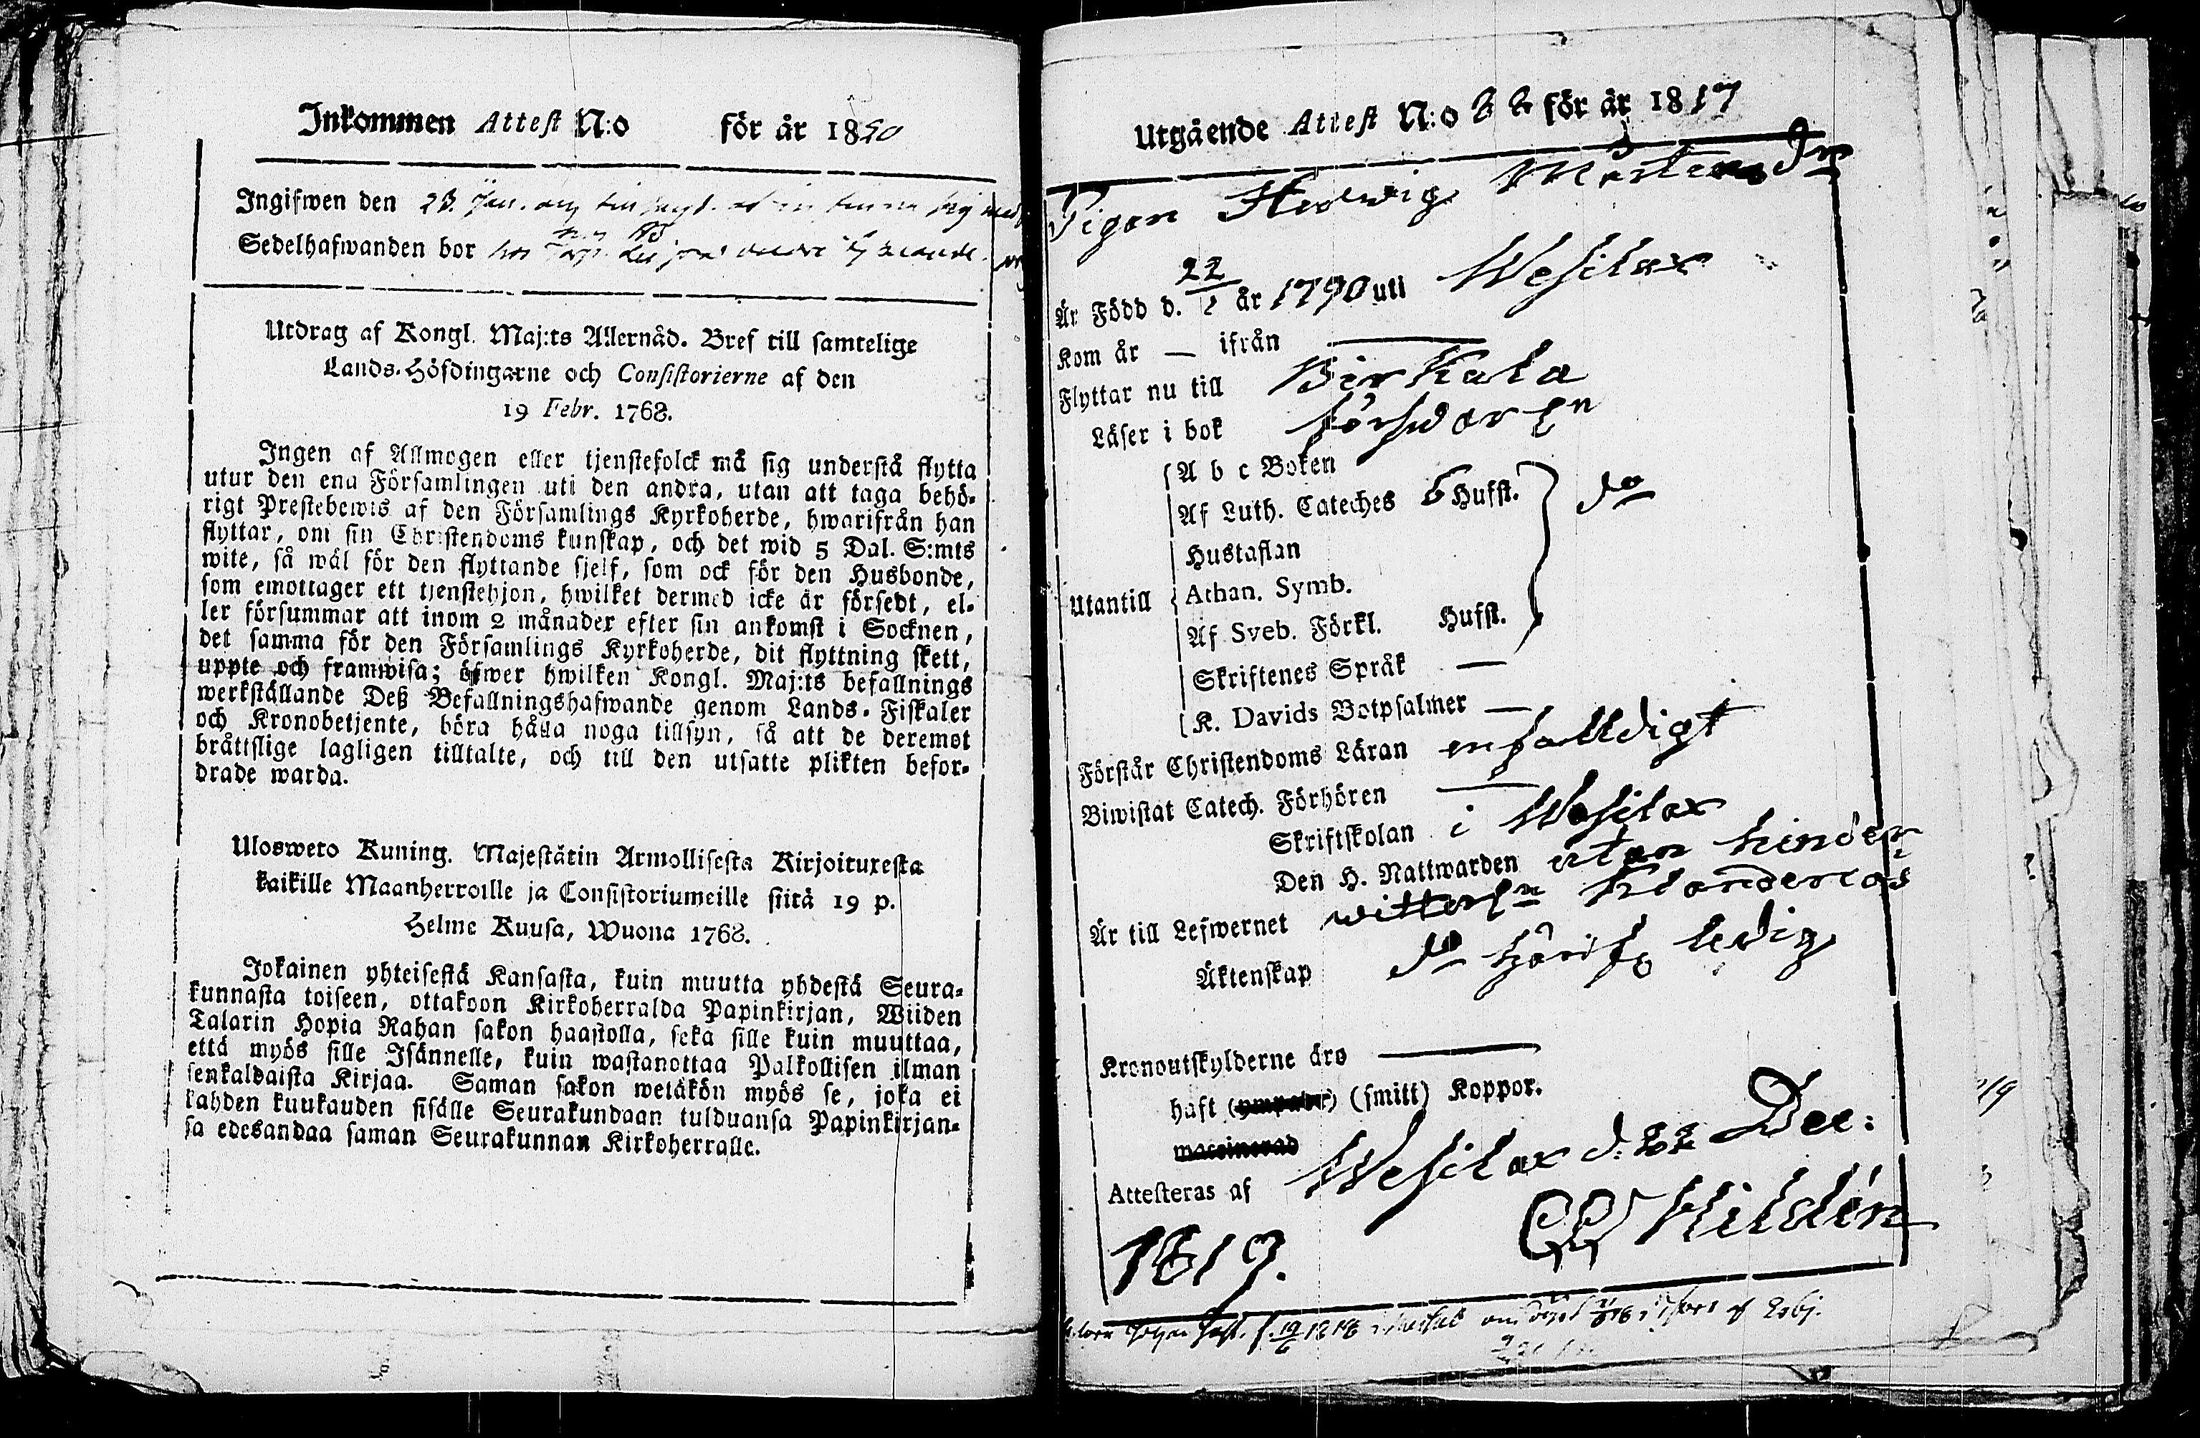 Inkommen Attest N:o för år 1820
Ingifwen den 23. Jan.
Sedelhafwanden bor hos
Utdrag af Kongl. Maj:ts Allernåd. Bref till samtelige
Lands-Höfdingarne och Consistorierne af den
19 Febr. 1768.
Ingen af Allmogen eller tjenstefolck må sig understå flytta
utur den ena Församlingen uti den andra, utan att taga behö-
rigt Prestebewis af den Församlings Kyrkoherde, hwarifrån han
flyttar, om sin Christendoms kunskap, och det wid 5 Dal. S:mts
wite, så wäl för den flyttande sjelf, som ock för den Husbonde,
som emottager ett tjenstehjon, hwilket dermed icke är försedt, el-
ler försummar att inom 2 månader efter sin ankomst i Socknen,
det samma för den Församlings Kyrkoherde, dit flyttning skett,
uppte och framwisa; öfwer hwilken Kongl. Maj:ts befallnings
werkställande Deß Befallningshafwande genom Lands-Fiskaler
och Kronobetjente, böra hålla noga tillsyn, så att de deremot
bråttslige lagligen tilltalte, och till den utsatte plikten befor-
drade warda.
Ulosweto Kuning. Majestätin Armollisesta Kirjoituxesta
kaikille Maanherroille ja Consistoriumeille siitä 19 p.
Helme Kuusa, Wuona 1768.
Jokainen yhteisestä Kansasta, kuin muutta yhdestä Seura-
kunnasta toiseen, ottakoon Kirkoherralda Papinkirjan, Wiiden
Talarin Hopia Rahan sakon haastolla, sekä sille kuin muuttaa,
että myös sille Isännelle, kuin wastanottaa Palkollisen ilman
senkaldaista Kirjaa. Saman sakon wetäkön myös se, joka ei
kahden kuukauden sisälle Seurakundaan tulduansa Papinkirjan-
sa edesandaa saman Seurakunnan Kirkoherralle.
Utgående Attest N:o 22 för år 1817
Pigan Hedwig Mårtens Dr
Är Född d. 22/1 år 1790 uti Wesilax
Kom år — ifrån —
Flyttar nu till Birkala
Läser i bok förswarln
A b c Boken
Af Luth. Cateches 6 Hufst. do
Hustaflan
Utantill Athan. Symb.
Af Sveb. Förkl. Hufst.
Skriftenes Språk —
K. Davids Botpsalmer —
Förstår Christendoms Läran enfalldigt
Biwistat Catech. Förhören —
Skriftskolan i Wesilax
Den H. Nattwarden utan hinder
Är till Lefwernet witterln klanderlös
Äktenskap do härifr. ledig
Kronoutskylderne äro —
haft (ympade) (smitt) Koppor.
waccinerad
Attesteras af Wesilax d. 22 Dec:
1819. Hildén